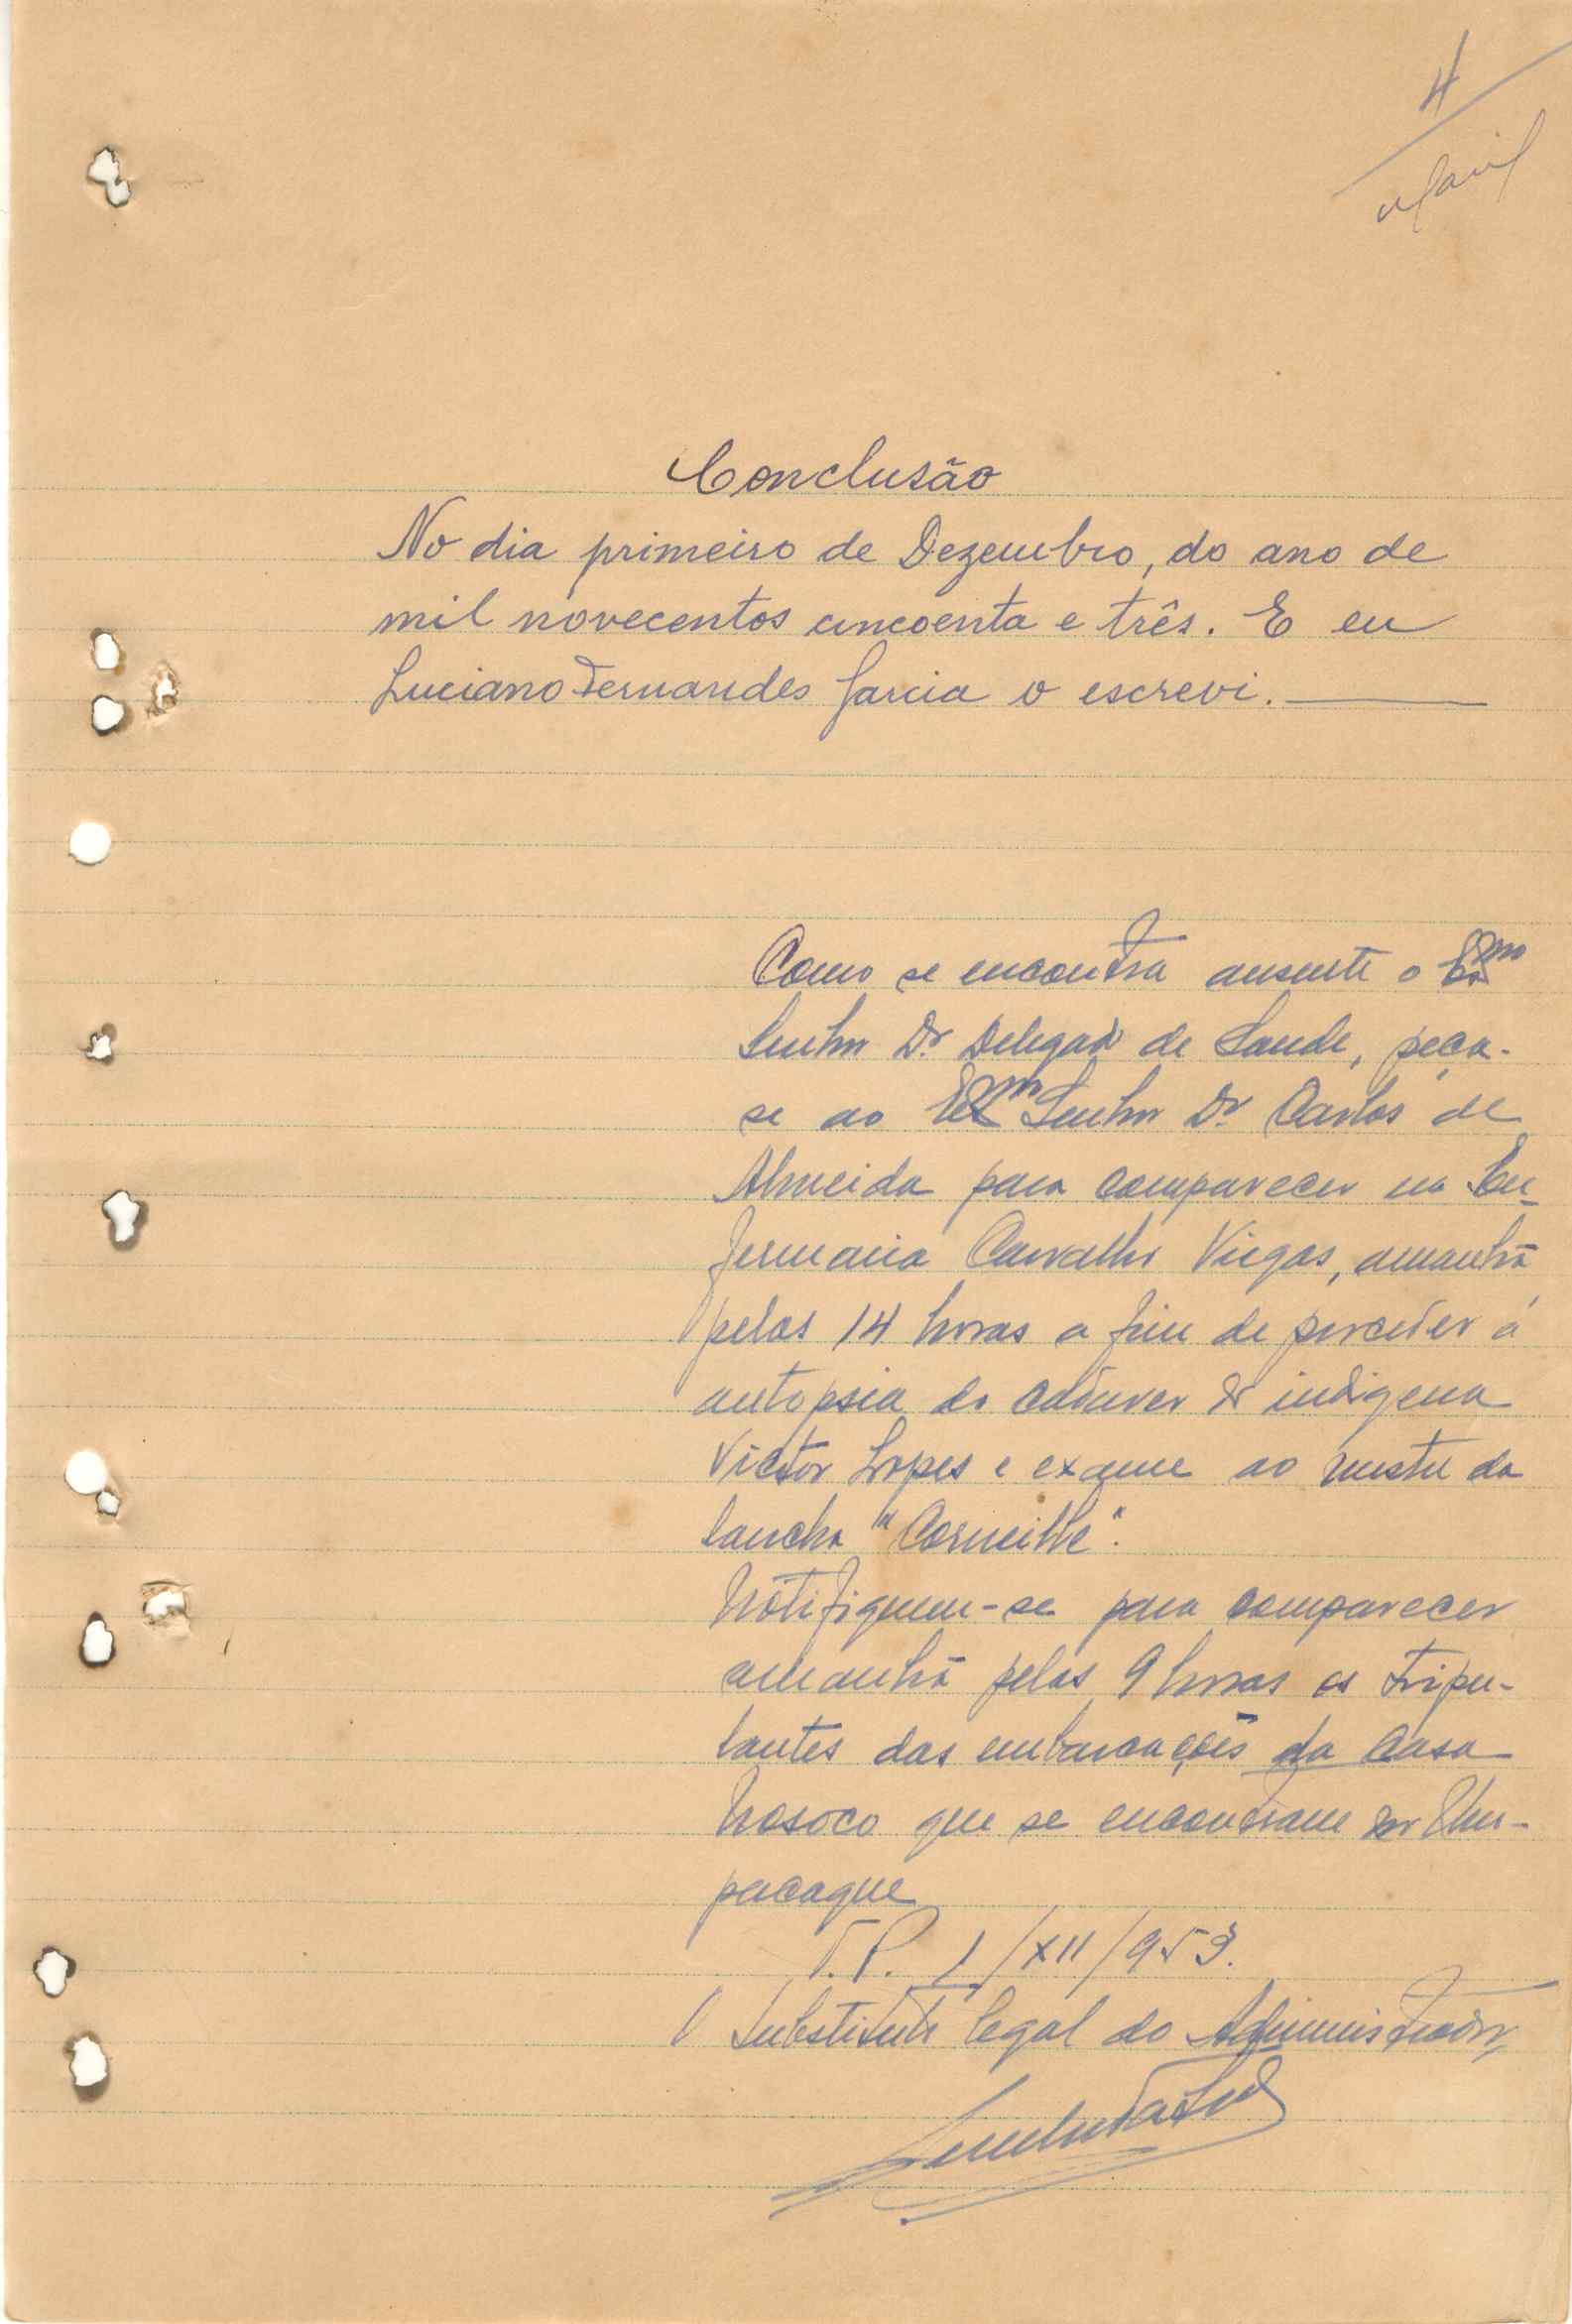 4
Conclusão
No dia primeiro de Dezembro, do ano de
mil novecentos cincoenta e três. E eu
Luciano Fernandes Garcia o escrevi.
Como se encontra ausente o Exmo
Senhor Dr. Delegado de Saude, peça-
se ao Exmo Senhor Dr. Carlos de
Almeida para comparecer na En-
fermaria Carvalho Viegas, amanhã
pelas 14 horas a fim de proceder á
autopsia do cadaver do indigena
Victor Lopes e exame ao mestre da
lancha "Corneille".
Notifiquem-se para comparecer
amanhã pelas 9 horas os tripu-
lantes das embarcações da Casa
Nosoco que se encontram
pacaque
T.P. 1/XII/953.
O Substituto legal do Administrador,